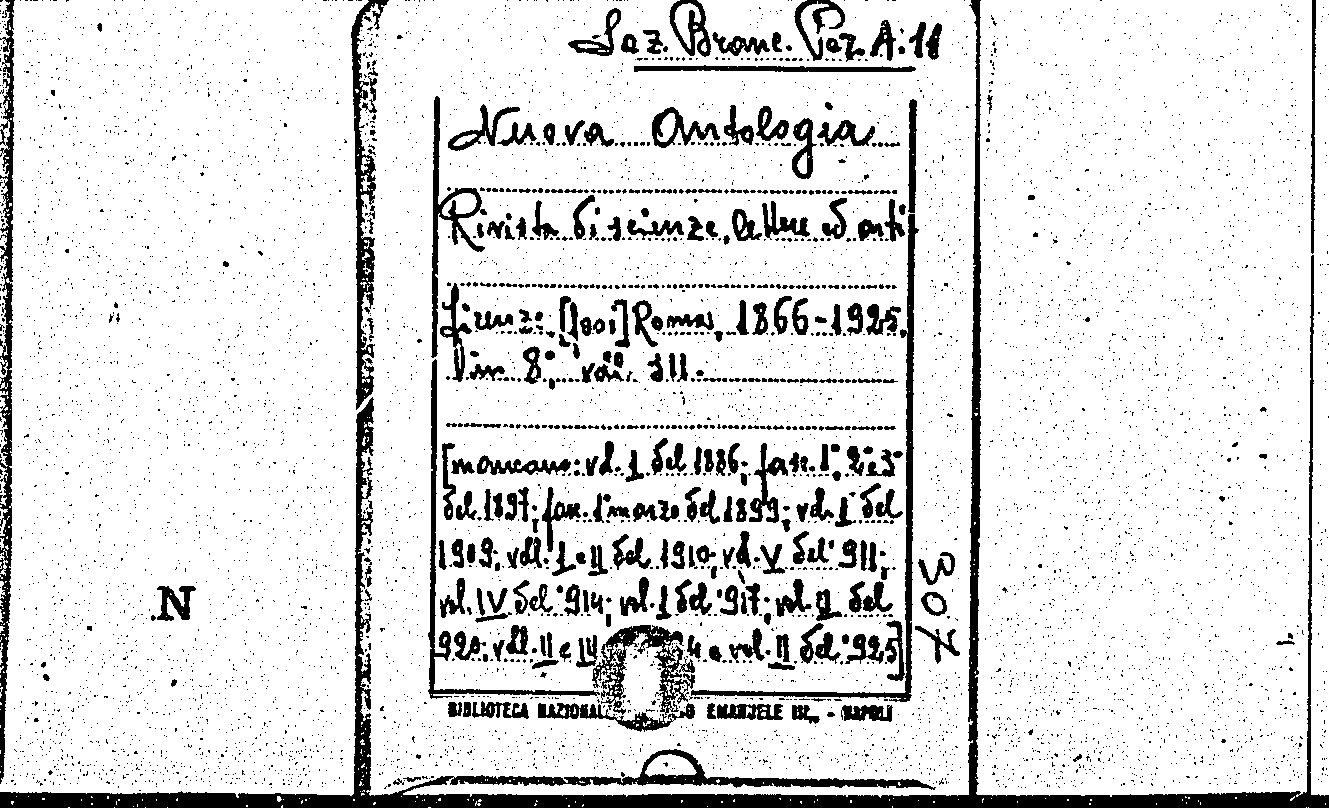 Saz. Branc. Paz. A. 11
Nuova Antologia
Rivista di scienze, lettere ed arti.
Firenze. [poi] Roma, 1866-1925.
in 8°, voll. 311.
[mancano: vol. I del 1886; fasc. 1°, 2° e 3°
del 1897; fasc. 1° marzo del 1899; vol. I del
1909; voll. I e II del 1910; vol. V del '911;
vol. IV del '914; vol. I del '917; vol. II del
920; voll. II e III 4 e vol. II del '925]
307
N
BIBLIOTECA NAZIONAL O EMANUELE III - NAPOLI